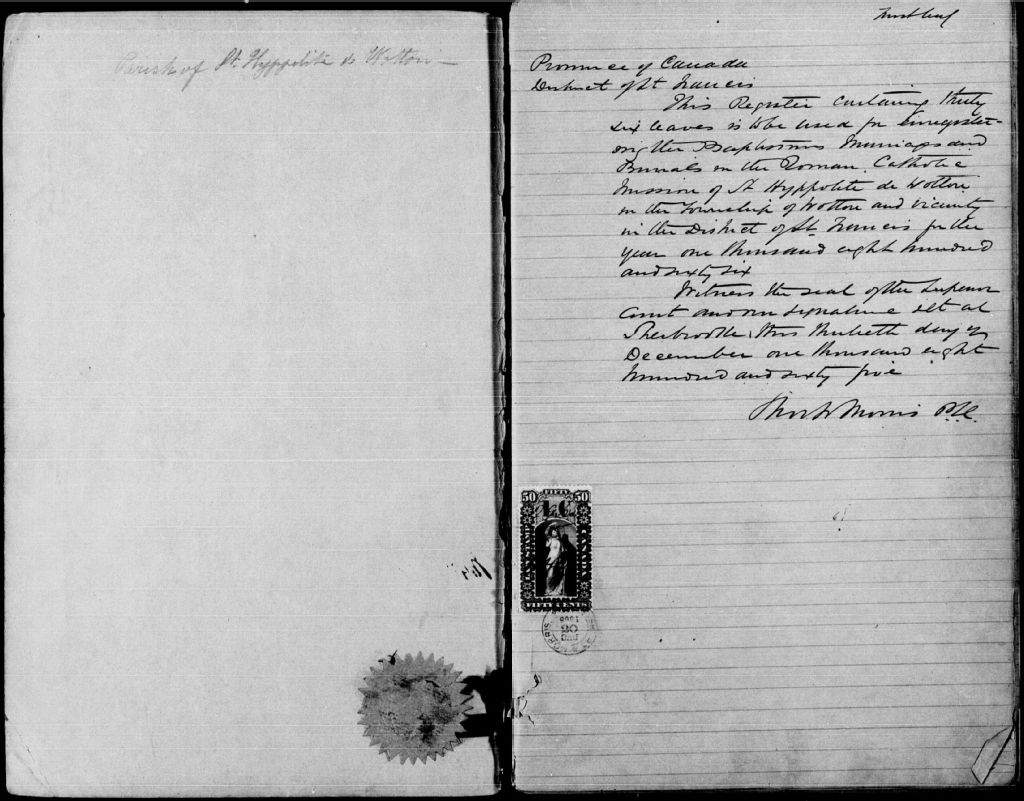 Parish of St. Hyppolite de Wotton —
First leaf
Province of Canada
District of St Francis
This Register containing thirty
six leaves is to be used for enregister-
ing the Baptisms Marriages and
Burials in the Roman Catholic
Mission of St Hyppolite de Wotton
in the Township of Wotton and vicinity
in the District of St Francis for the
year one thousand eight hundred
and sixty six
Witness the seal of the Superior
Court and my signature set at
Sherbrooke, this thirtieth day of
December one thousand eight
hundred and sixty five
Morris P.S.C.
50 FIFTY 50
L.C.
LAW STAMP
CANADA
FIFTY CENTS
MORRIS